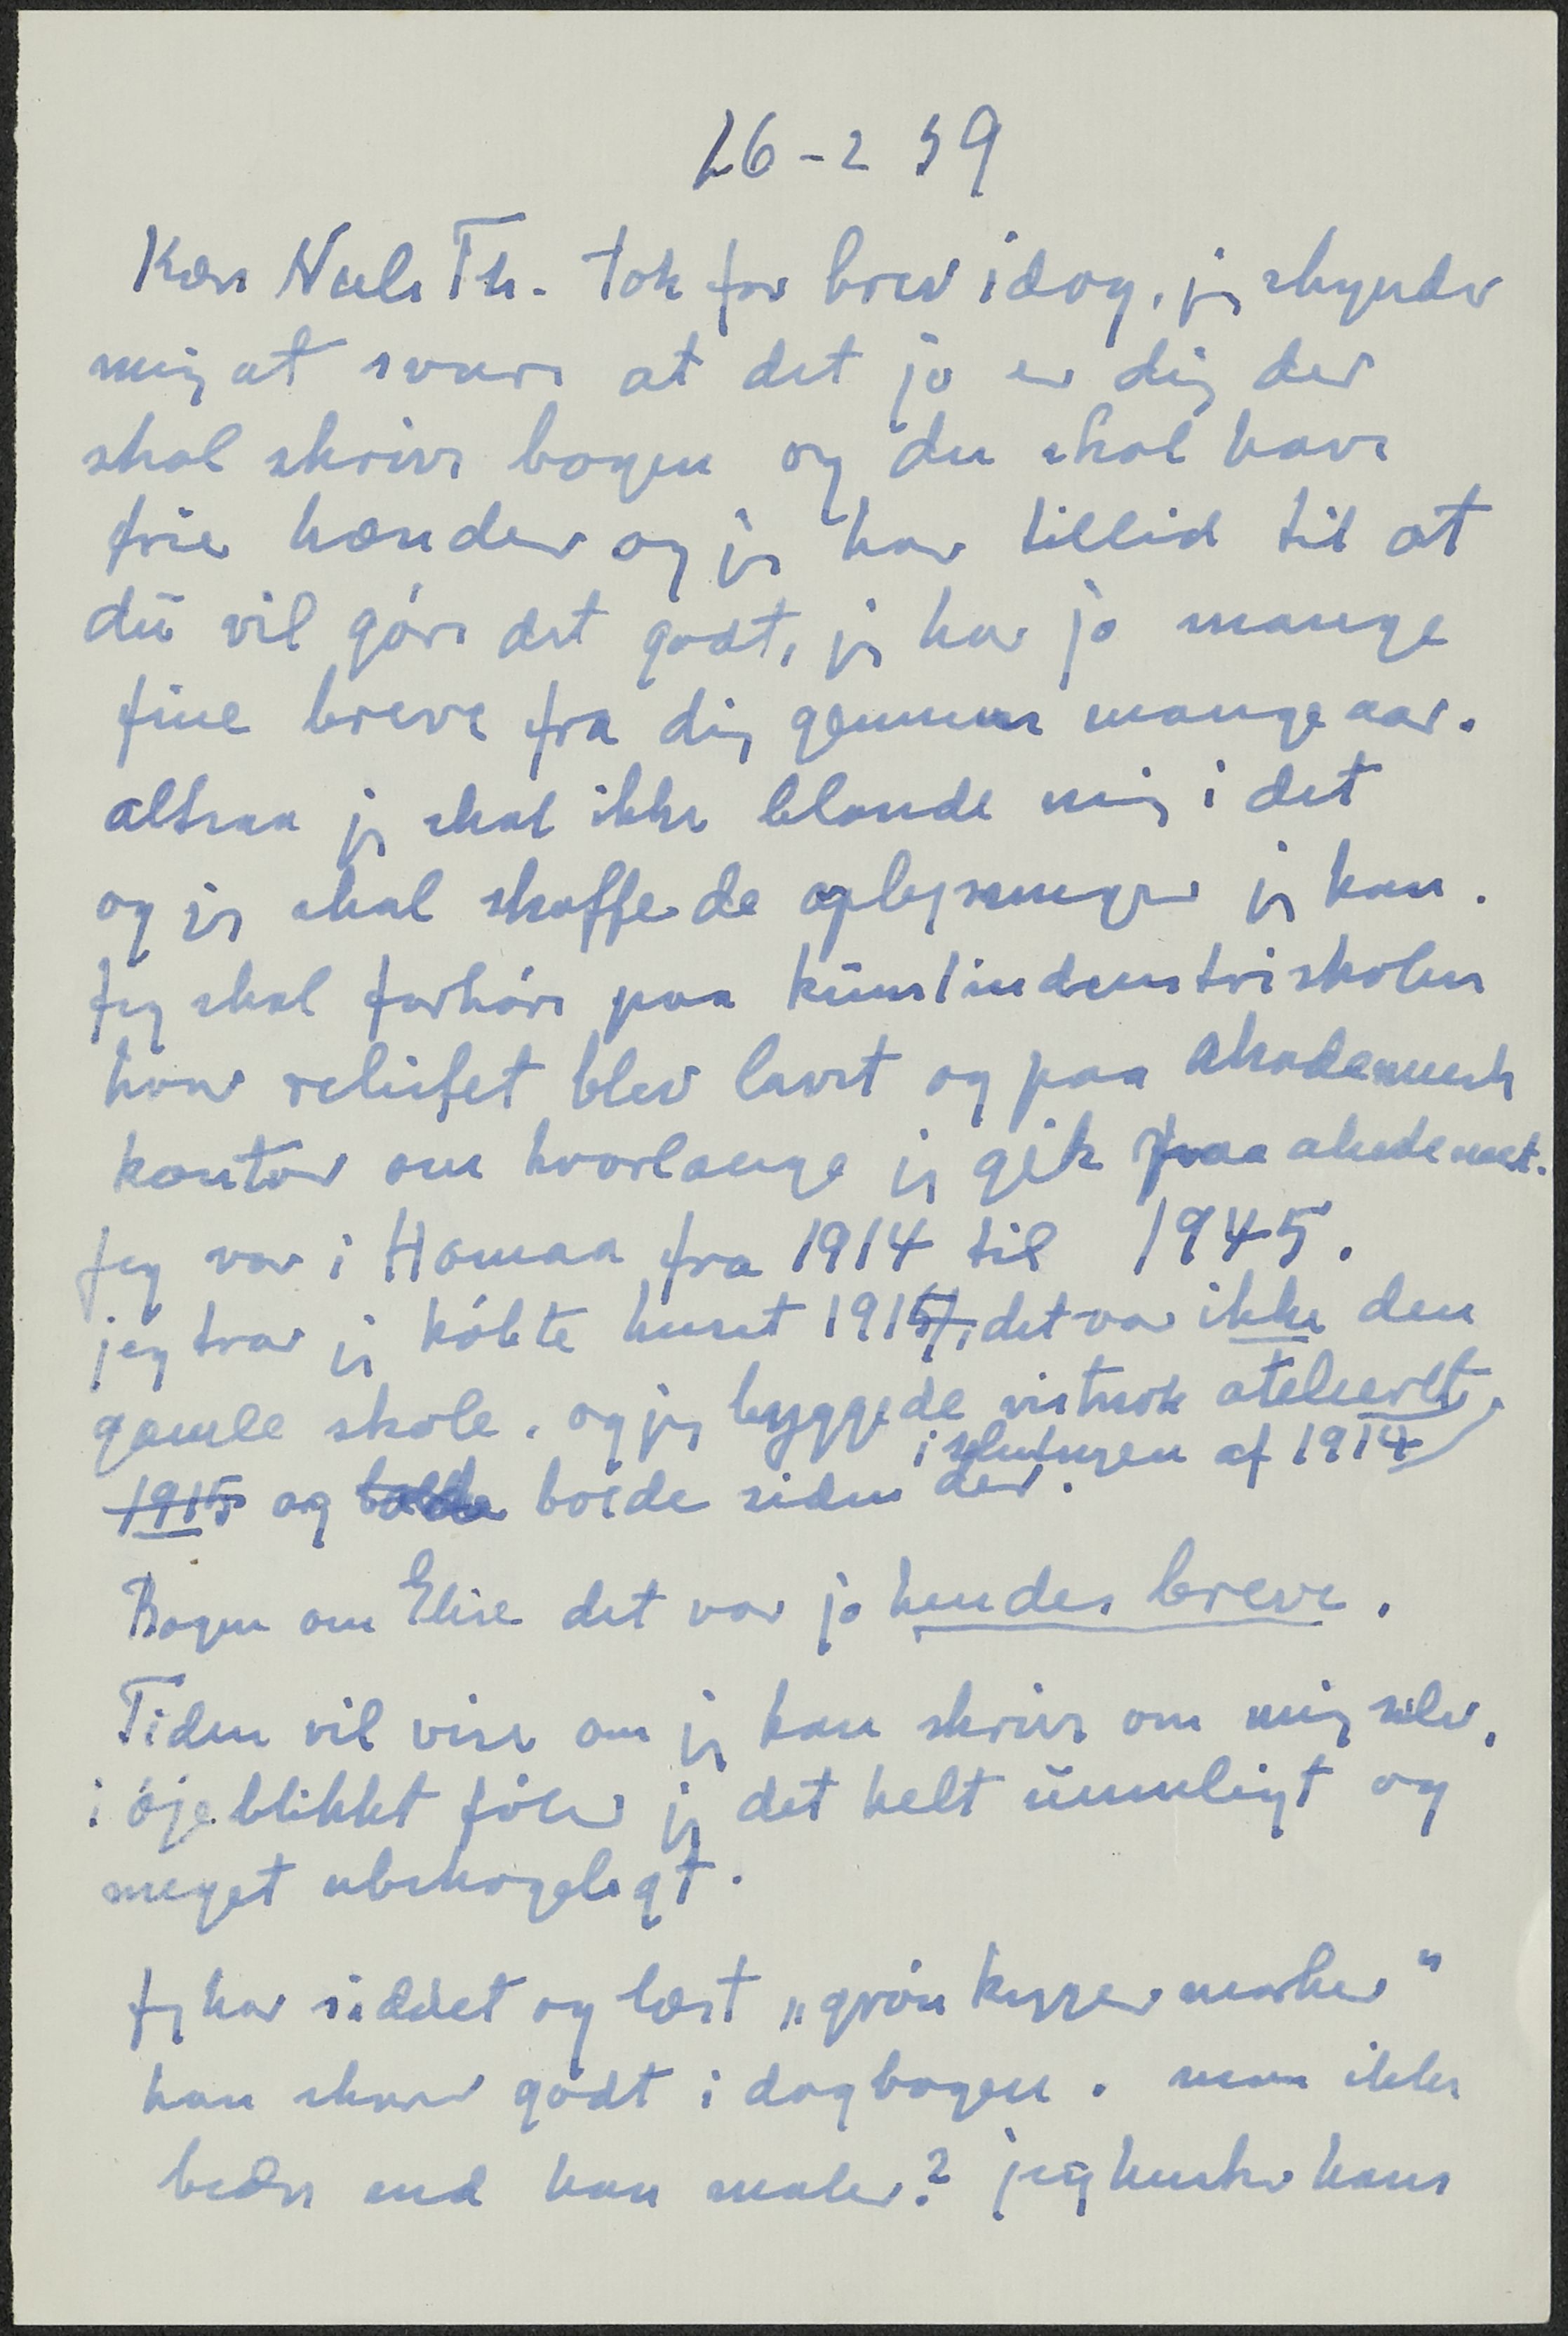 26-2 59
Kære Niels Th. tak for brev idag, jeg skynder
mig at svare at det jo er dig der
skal skrive bogen og du skal have
frie hænder og jeg har tillid til at
du vil göre det godt, jeg har jo mange
fine breve fra dig gennem mange aar.
altsaa jeg skal ikke blande mig i det
og jeg skal skaffe de oplysninger jeg kan.
Jeg skal forhöre paa kunstindustriskolen
hvor relieffet blev lavet og paa Akademiets
kontor om hvorlænge jeg gik paa akademiet.
Jeg var i Homaa fra 1914 til 1945.
jeg tror jeg köbte huset 1914, det var ikke den
gamle skole. og jeg byggede vistnok atelieret
i slutningen af 1914
1915 og boede siden der.
Bogen om Elise det var jo hendes breve.
Tiden vil vise om jeg kan skrive om mig selv,
i öjeblikket föler jeg det helt umuligt og
meget ubehageligt.
Jeg har siddet og læst „grön kysser marker"
han skriver godt i dagbogen. mon ikke
bedre end han maler? jeg husker hans